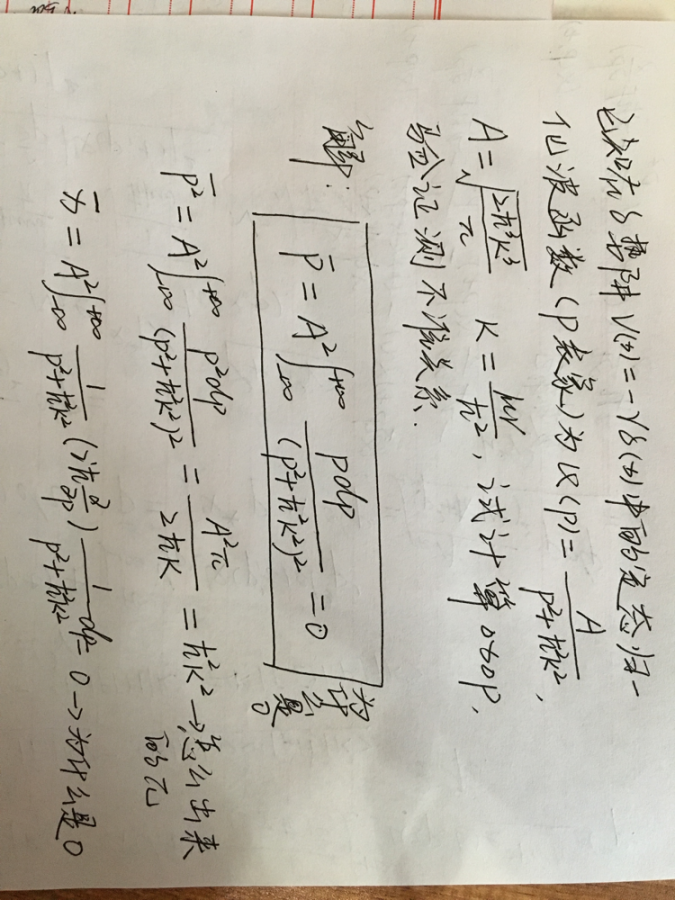 已知在δ势阱V(x)=-γδ(x)中的定态归一
化波函数(p表象)为φ(p)=A/(p²+ħ²k²),
A=√(2ħ³k³/π) K=μγ/ħ²,试计算ΔxΔp,
验证测不准关系.
解:
p̄=A²∫_{-∞}^{+∞} pdp/(p²+ħ²k²)²=0
为什么是0
p̄²=A²∫_{-∞}^{+∞} p²dp/(p²+ħ²k²)²=A²π/2ħK=ħ²k²→怎么出来的π
x̄=A²∫_{-∞}^{+∞} 1/(p²+ħ²k²) (iħ ∂/∂p) 1/(p²+ħ²k²) dp=0→为什么是0